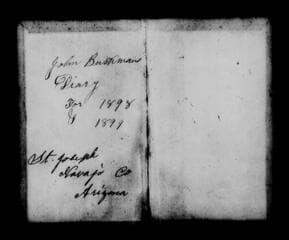 John Bushman
Diary
For 1898
& 1899
St. Joseph
Navajo Co
Arizona